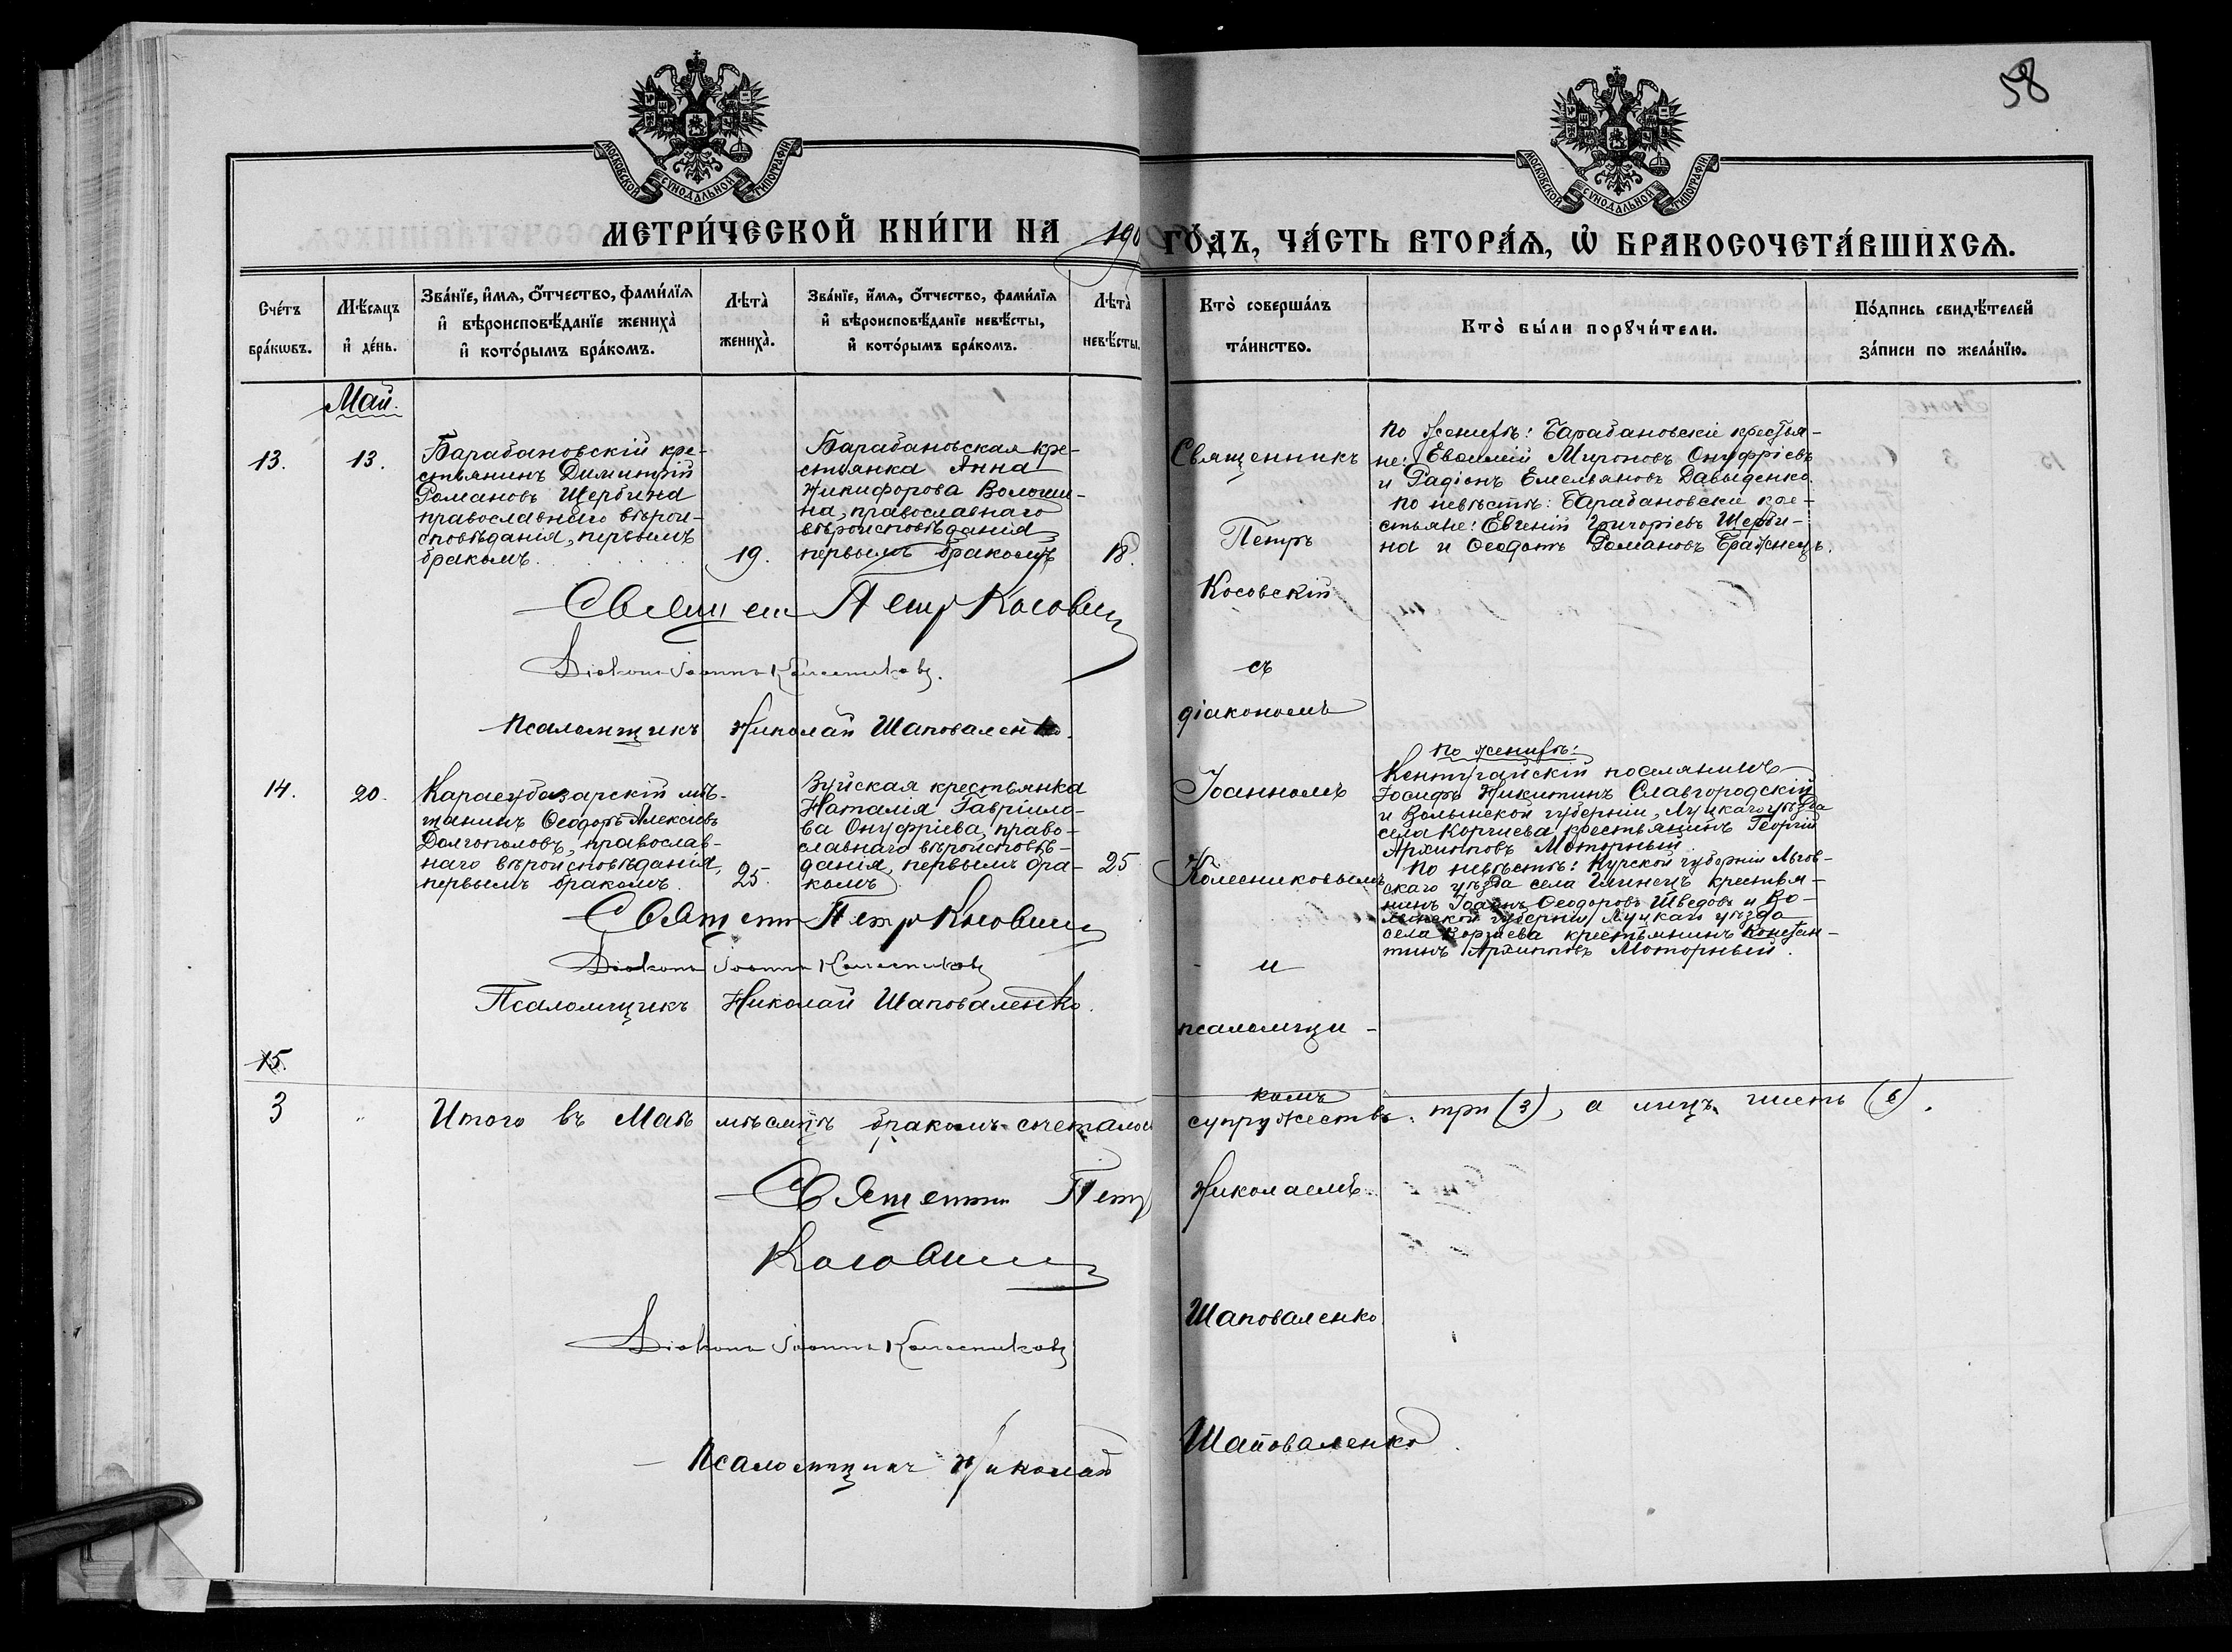 58
МОСКОВСКОЙ СѴНОДАЛЬНОЙ ТИПОГРАФІИ
МОСКОВСКОЙ СѴНОДАЛЬНОЙ ТИПОГРАФІИ
МЕТРИ́ЧЕСКОЙ КНИ́ГИ НА 190 ГО́ДЪ, ЧА́СТЬ ВТОРА́Ѧ, Ѡ БРАКОСОЧЕТА́ВШИХСѦ.
Сче́тъ
бра́кѡвъ.
Мѣ́сѧцъ
и҆ де́нь.
Зва́нїе, и҆́мѧ, ѻ҆́тчество, фами́лїѧ
и҆ вѣроисповѣ́данїе жениха̀
и҆ кото́рымъ бра́комъ.
Лѣта̀
жениха̀.
Зва́нїе, и҆́мѧ, ѻ҆́тчество, фами́лїѧ
и҆ вѣроисповѣ́данїе невѣ́сты,
и҆ кото́рымъ бра́комъ.
Лѣта̀
невѣ́сты.
Кто̀ соверша́лъ
та́инство.
Кто̀ бы́ли порꙋчи́тели.
По́дпись свидѣ́телей
за́писи по жела́нїю.
Май.
13.
13.
Барабановскій кре-
стьянинъ Димитрій
Романовъ Щербина
православнаго вѣрои-
сповѣданія, первымъ
бракомъ.
19.
Барабановская кре-
стьянка Анна
Никифорова Волоши-
на, православнаго
вѣроисповѣданія
первымъ бракомъ
18.
Священникъ
Петръ
Косовскій
съ
діакономъ
Іоанномъ
Колесниковымъ
и
псаломщи-
комъ
Николаемъ
Шаповаленко
По женихѣ: Барабановскіе крестья-
не: Евѳимій Мироновъ Онуфріевъ
и Радіонъ Емельяновъ Давыденко.
По невѣстѣ: Барабановскіе кре-
стьяне: Евгеній Григоріевъ Щерби-
на и Ѳеодотъ Романовъ Бражнецъ.
Священ Петр Косовскій
Діаконъ Іоаннъ Колесниковъ.
Псаломщикъ Николай Шаповаленко.
14.
20.
Карасубазарскій мѣ-
щанинъ Ѳеодоръ Алексіевъ
Долгополовъ, православ-
наго вѣроисповѣданія,
первымъ бракомъ.
25.
Зуйская крестьянка
Наталія Гавріило-
ва Онуфріева, право-
славнаго вѣроисповѣ-
данія, первымъ бра-
комъ
25
По женихѣ:
Кентугайскій поселянинъ
Іосифъ Никитинъ Славгородскій
и Волынской губерніи, Луцкаго уѣзда
села Коршева крестьянинъ Георгій
Архиповъ Моторный.
По невѣстѣ: Курской губерніи Льгов-
скаго уѣзда села Глинецъ крестья-
нинъ Іоаннъ Ѳеодоровъ Шведовъ и Во-
лынской губерніи Луцкаго уѣзда
села Коршева крестьянинъ Констан-
тинъ Архиповъ Моторный.
Священн Петр Косовскій
Діаконъ Іоаннъ Колесниковъ
Псаломщикъ Николай Шаповаленко.
15.
3
Итого въ Маѣ мѣсяцѣ бракомъ сочеталось супружествъ три (3), а лицъ шесть (6).
Священн Петр
Косовскій
Діаконъ Іоаннъ Колесниковъ
Псаломщикъ Николай Шаповаленко